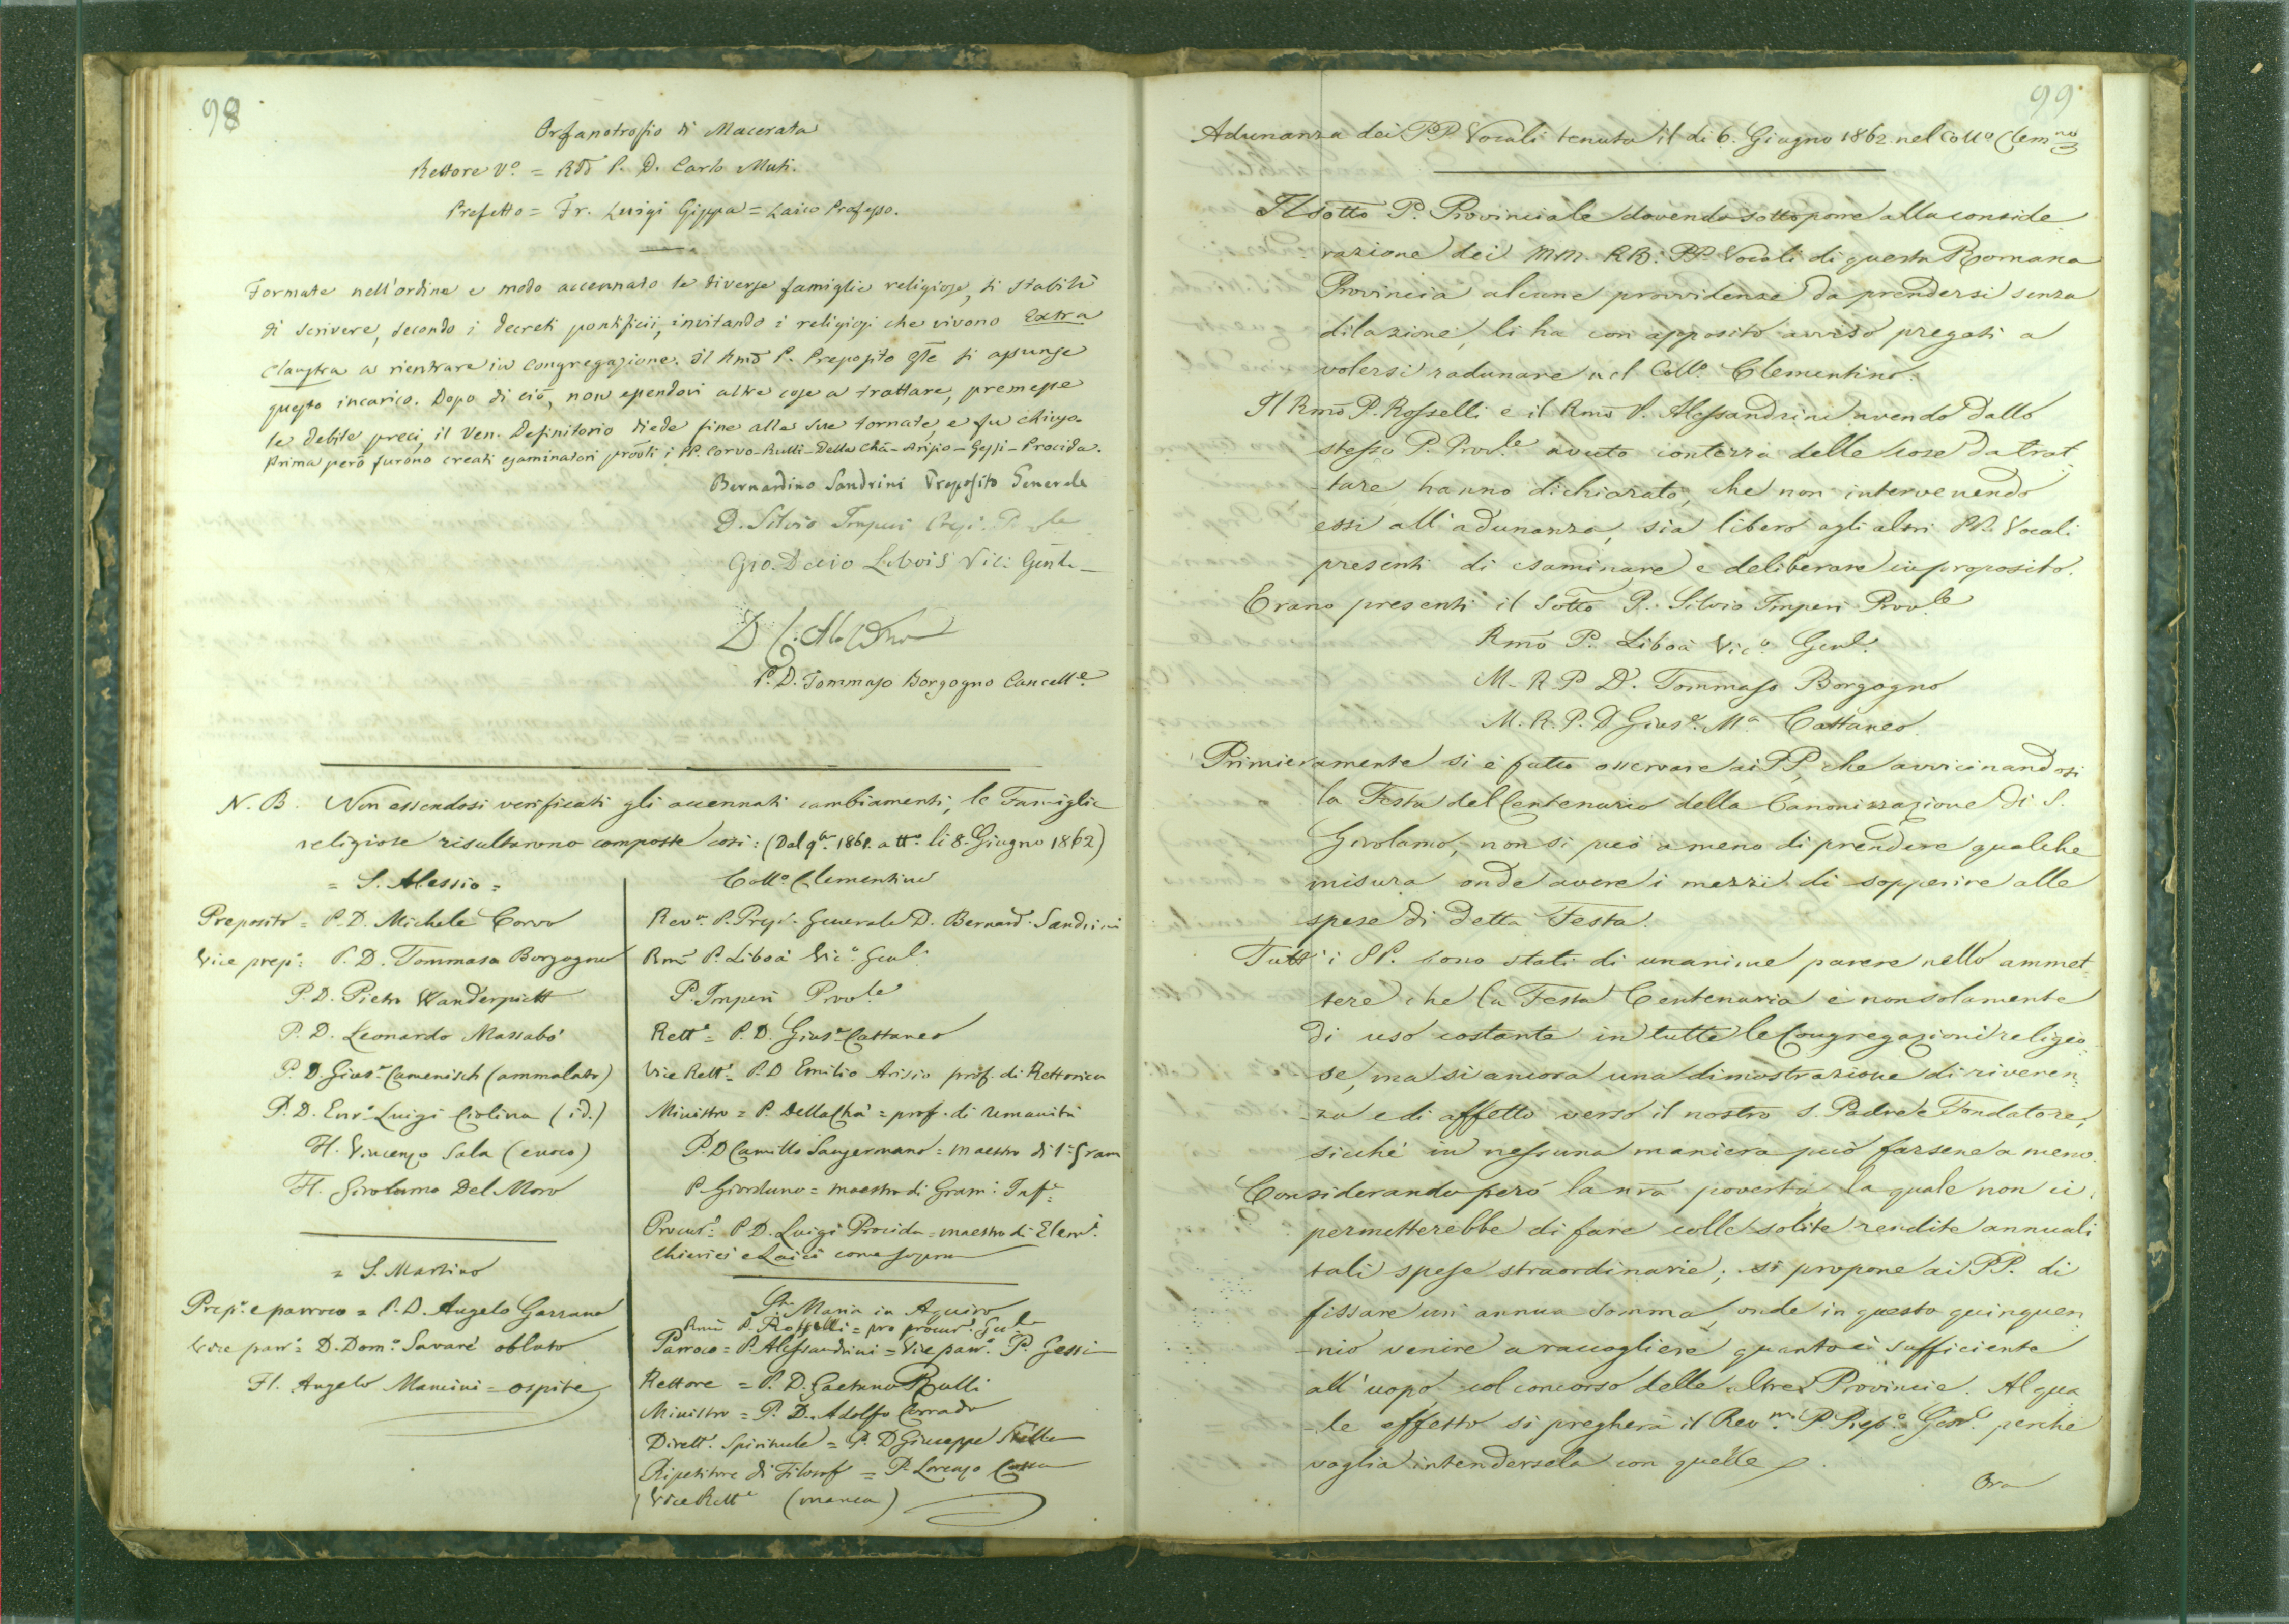 98
Orfanotrofio di Macerata
Rettore V.o = Rdo P. D. Carlo Muti.
Prefetto = Fr. Luigi Gippa = Laico Professo.
Formate nell'ordine e modo accennato le diverse famiglie religiose, si stabilì
di scrivere, secondo i decreti pontificii, invitando i religiosi che vivono extra
claustra a rientrare in Congregazione. Il Rmo P. Preposito Gle si assunse
questo incarico. Dopo di ciò, non essendovi altre cose a trattare, premesse
le debite preci, il Ven. Definitorio diede fine alle sue tornate, e fu chiuso.
Prima però furono creati esaminatori provli i PP. Corvo - Rulli - Della Chà - Arisio - Gessi - Procida.
Bernardino Sandrini Preposito Generale
D. Silvio Imperi Prep. P.le
Gio. Decio Libois Vic: Genle
P. D. Tommaso Borgogno Cancell.e
N. B. Non essendosi verificati gli accennati cambiamenti, le Famiglie
religiose risultarono composte così: (Dal 9br. 1861. a tt.o li 8. Giugno 1862)
= S. Alessio =
Preposito = P. D. Michele Corvo
Vice prep.o = P. D. Tommaso Borgogno
P. D. Pietro Wanderpitt
P. D. Leonardo Massabò
P. D. Gius.e Camenisch (ammalato)
P. D. Enr.o Luigi Ciolina (id.)
Fl. Vincenzo Sala (cuoco)
Fl. Girolamo Del Moro
= S. Martino
Prep.o e parroco = P. D. Angelo Garzana
Vice parr.o = D. Dom.o Savarè oblato
Fl. Angelo Mancini = ospite
Coll.o Clementino
Rev.mo P. Prep. Generale D. Bernard. Sandrini
Rmo P. Liboà Vic.o Genl.
P. Imperi Prov.le
Rett.e = P. D. Gius.e Cattaneo
Vice Rett.e = P. D Emilio Arisio prof. di Rettorica
Ministro = P. Della Chà = prof. di Umanità
P. D Camillo Sangermano = maestro di 1.a gram
P. Giordano = maestro di Gram: Inf.e
Procur.e P D. Luigi Procida = maestro di Elem.i
Chierici e Laici come sopra
S.ta Maria in Aquiro
Rmo P. Rosselli = pro procur. Gnle
Parroco = P. Alessandrini = Vice parr.o P. Gessi
Rettore = P. D. Gaetano Rulli
Ministro = P. D. Adolfo Conrado
Dirett.e Spirituale = P. D Giuseppe Stella
Ripetitore di Filosof = P. Lorenzo Cossa
Vice Rett.e (manca)
99
Adunanza dei PP Vocali tenuta il di 6. Giugno 1862 nel Coll.o Clem.no
Il sotto P. Provinciale dovendo sottoporre alla conside
razione dei MM. RR. PP Vocali di questa Romana
Provincia alcune provvidenze da prendersi senza
dilazione, li ha con apposito avviso pregati a
volersi radunare nel Coll.o Clementino.
Il Rmo P. Rosselli e il Rmo P. Alessandrini avendo dallo
stesso P. Prov.le avuto contezza delle cose da trat
tare hanno dichiarato, che non intervenendo
essi all'adunanza, sia libero agli altri PP. Vocali
presenti di esaminare e deliberare in proposito.
Erano presenti il Sotto P. Silvio Imperi Prov.le
Rmo P. Liboà Vic.o Genl.
M. R. P D. Tommaso Borgogno
M. R. P. D Gius.e M.a Cattaneo
Primieramente si è fatto osservare ai PP, che avvicinandosi
la Festa del Centenario della Canonizzazione di S.
Girolamo, non si può a meno di prendere qualche
misura onde avere i mezzi di sopperire alle
spese di detta Festa.
Tutti i PP. sono stati di unanime parere nello ammet
tere che la Festa Centenaria è non solamente
di uso costante in tutte le Congregazioni religio
se, ma si ancora una dimostrazione di riveren
za e di affetto verso il nostro S. Padre e Fondatore,
sicchè in nessuna maniera può farsene a meno.
Considerando però la nra povertà, la quale non ci
permetterebbe di fare colle solite rendite annuali
tali spese straordinarie; si propone ai PP. di
fissare un annua somma, onde in questo quinquen
nio venire a raccogliere quanto è sufficiente
all'uopo col concorso delle altre Provincie. Al qua
le effetto si pregherà il Rev.mo P. Prep.o Gen.le perchè
voglia intendersela con quelle.
Ora